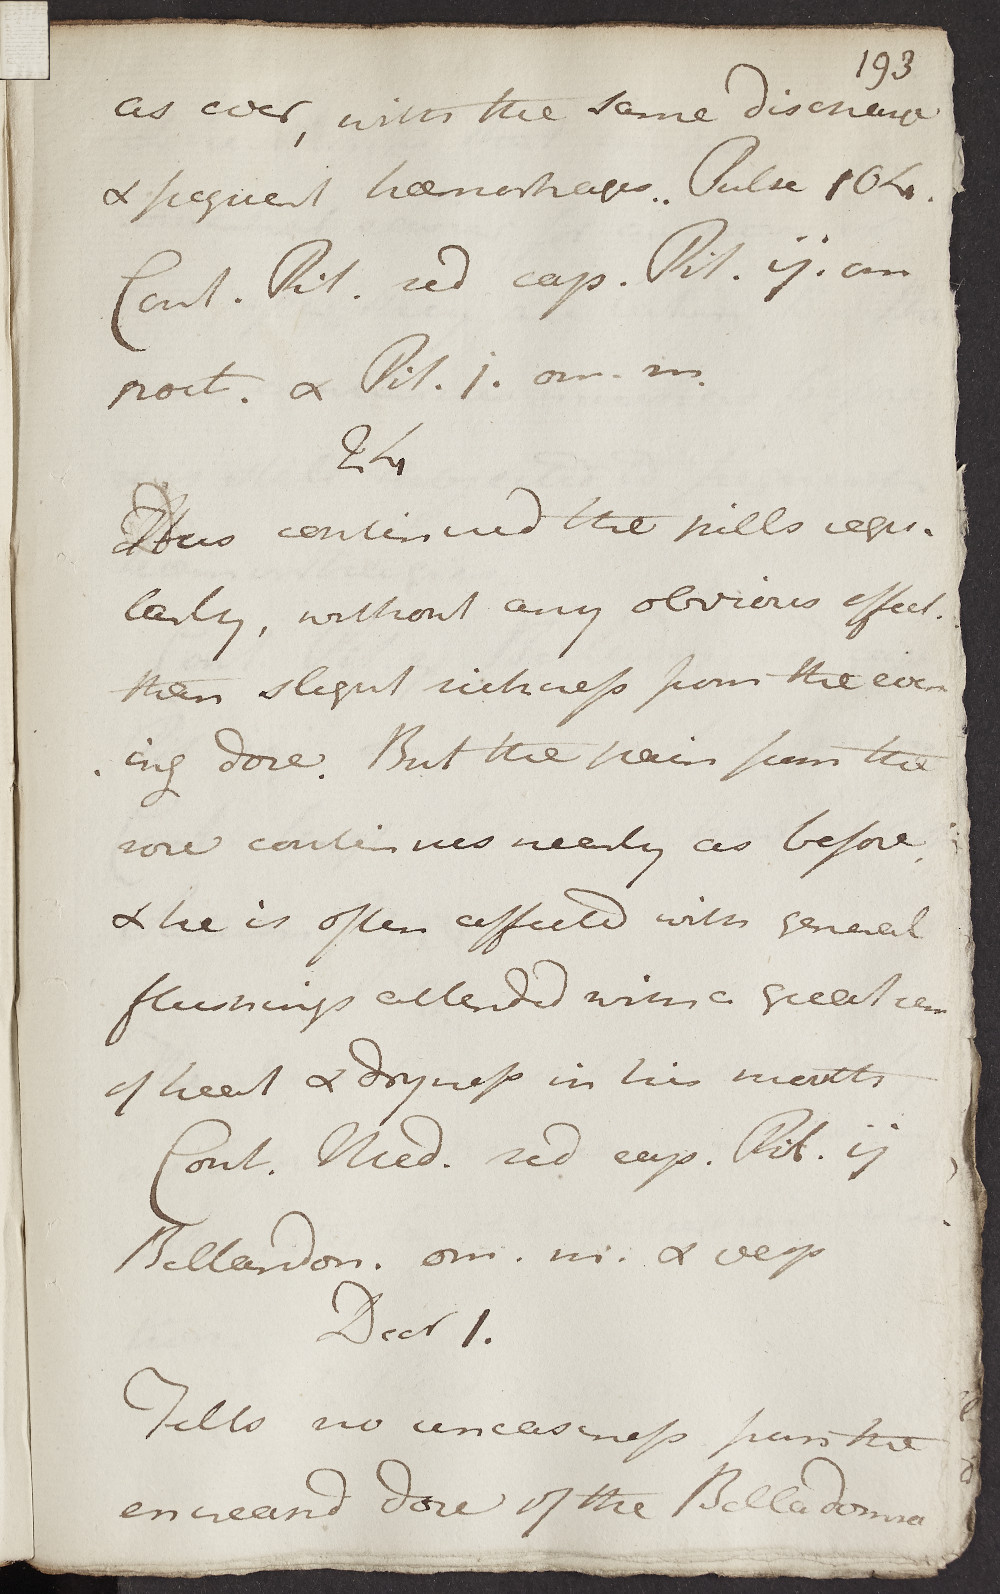 193
as ever, with the same discharge
& frequent hæmorhages.. Pulse 104.
Cont. Pil. sed cap. Pil. ij. om
noct. & Pil. j. om. m.
24
Has continued the pills regu-
larly, without any obvious effect.
then slight sickness from the even
ing dose. But the pain from the
sore continues nearly as before,
& he is often affected with general
flushings attended with a great
of heat & dryness in his mouth
Cont. Med. sed cap. Pil. ij
Belladon. om. m. & vesp
Decr 1.
Fells no uneasiness from the
encreasd dose of the Belladonna